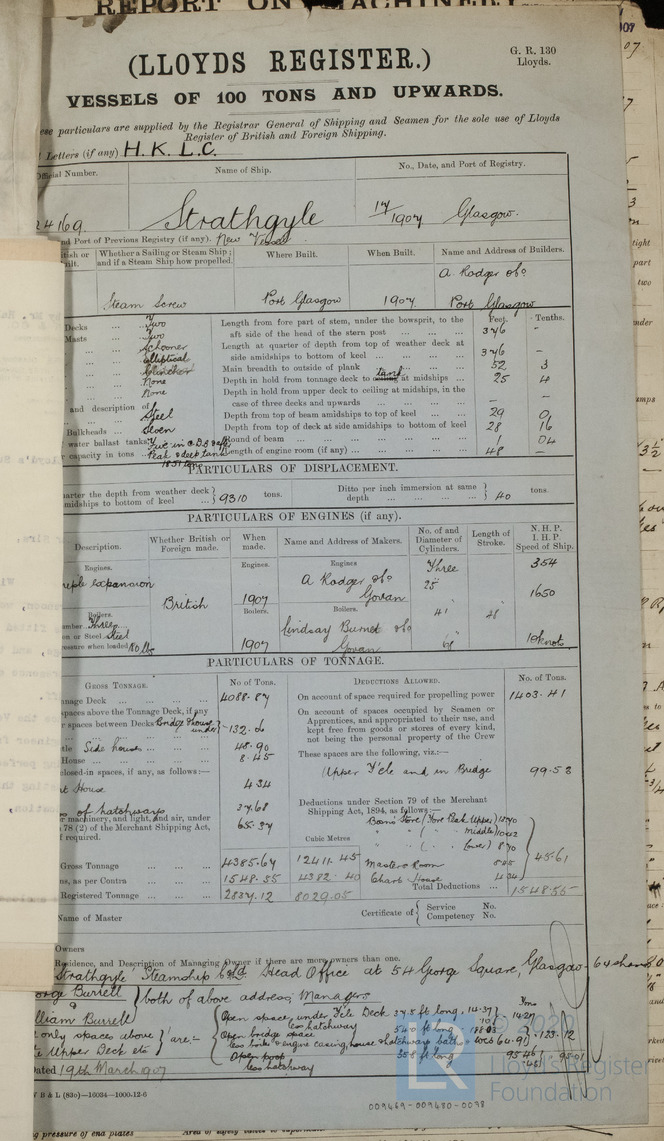 REPORT ON MACHINERY
(LLOYDS REGISTER.)
G. R. 130
Lloyds.
VESSELS OF 100 TONS AND UPWARDS.
ese particulars are supplied by the Registrar General of Shipping and Seamen for the sole use of Lloyds
Register of British and Foreign Shipping.
l Letters (if any) H. K. L. C.
Official Number. Name of Ship. No., Date, and Port of Registry.
24169. Strathgyle 17/1907 Glasgow.
nd Port of Previous Registry (if any). New Vessel
Whether a Sailing or Steam Ship; and if a Steam Ship how propelled. Where Built. When Built. Name and Address of Builders.
Steam Screw Port Glasgow 1907 A. Rodger & Co Port Glasgow
Decks Two
Masts Two
Schooner
Elliptical
Clincher
None
None
and description of Steel
Bulkheads Seven
water ballast tanks
r capacity in tons
Feet. Tenths.
Length from fore part of stem, under the bowsprit, to the
aft side of the head of the stern post 376 -
Length at quarter of depth from top of weather deck at
side amidships to bottom of keel 376 -
Main breadth to outside of plank 52 3
Depth in hold from tonnage deck to tank at midships 25 4
Depth in hold from upper deck to ceiling at midships, in the
case of three decks and upwards - -
Depth from top of beam amidships to top of keel 29
Depth from top of deck at side amidships to bottom of keel 28 16
Round of beam 1 04
Length of engine room (if any) 48 -
PARTICULARS OF DISPLACEMENT.
uarter the depth from weather deck
midships to bottom of keel 9310 tons. Ditto per inch immersion at same
depth 40 tons.
PARTICULARS OF ENGINES (if any).
Description. Whether British or Foreign made. When made. Name and Address of Makers. No. of and Diameter of Cylinders. Length of Stroke. N. H. P. I. H. P. Speed of Ship.
Engines. Engines. Engines Three 354
reple expansion British 1907 A Rodger & Co Govan 25" 1650
Boilers. Boilers. Boilers. 41 " 48 "
mber Three
en or Steel Steel
ressure when loaded 180 lbs 1907 Lindsay Burnet & Co Govan 68 10 knots
PARTICULARS OF TONNAGE.
GROSS TONNAGE. No. of Tons. DEDUCTIONS ALLOWED. No. of Tons.
nnage Deck 4088.87
On account of space required for propelling power 1403.41
spaces above the Tonnage Deck, if any
r spaces between Decks Bridge & house under 132.06
On account of spaces occupied by Seamen or
Apprentices, and appropriated to their use, and
kept free from goods or stores of every kind,
not being the personal property of the Crew
Side houses 48.90
House 8.45
These spaces are the following, viz.:—
closed-in spaces, if any, as follows:—
Upper F'cle and in Bridge 99.53
t House 4.34
s of hatchways 37.68
r machinery, and light, and air, under
78 (2) of the Merchant Shipping Act,
f required. 65.37
Deductions under Section 79 of the Merchant
Shipping Act, 1894, as follows:—
Bosn's Store (Fore Peak Upper)
" " ( " middle)
" " ( " Lower)
Cubic Metres 45.61
Gross Tonnage 4385.67 12411.45 Masters Room
ns, as per Contra 1548.55 4382.40 Chart House 4.34
Registered Tonnage 2837.12 8029.05 Total Deductions 1548.55
Name of Master Certificate of { Service No.
Competency No.
Owners
Residence, and Description of Managing Owner if there are more owners than one.
Strathgyle Steamship Co Ld Head Office at 54 George Square, Glasgow - 64 shares
orge Burrell
&
illiam Burrell } both of above address, Managers
t only spaces above
e Upper Deck etc } are:-
Open space, under F'cle Deck 37.5 ft long,
less hatchway
Open bridge space
less boiler & engine casing, house & hatchway
123.12
less hatchway
Dated 19th March 1907
W B & L (83o)—16034—1000-12-6
© 2020
LR
Lloyd's Register
Foundation
009469-009480-0098